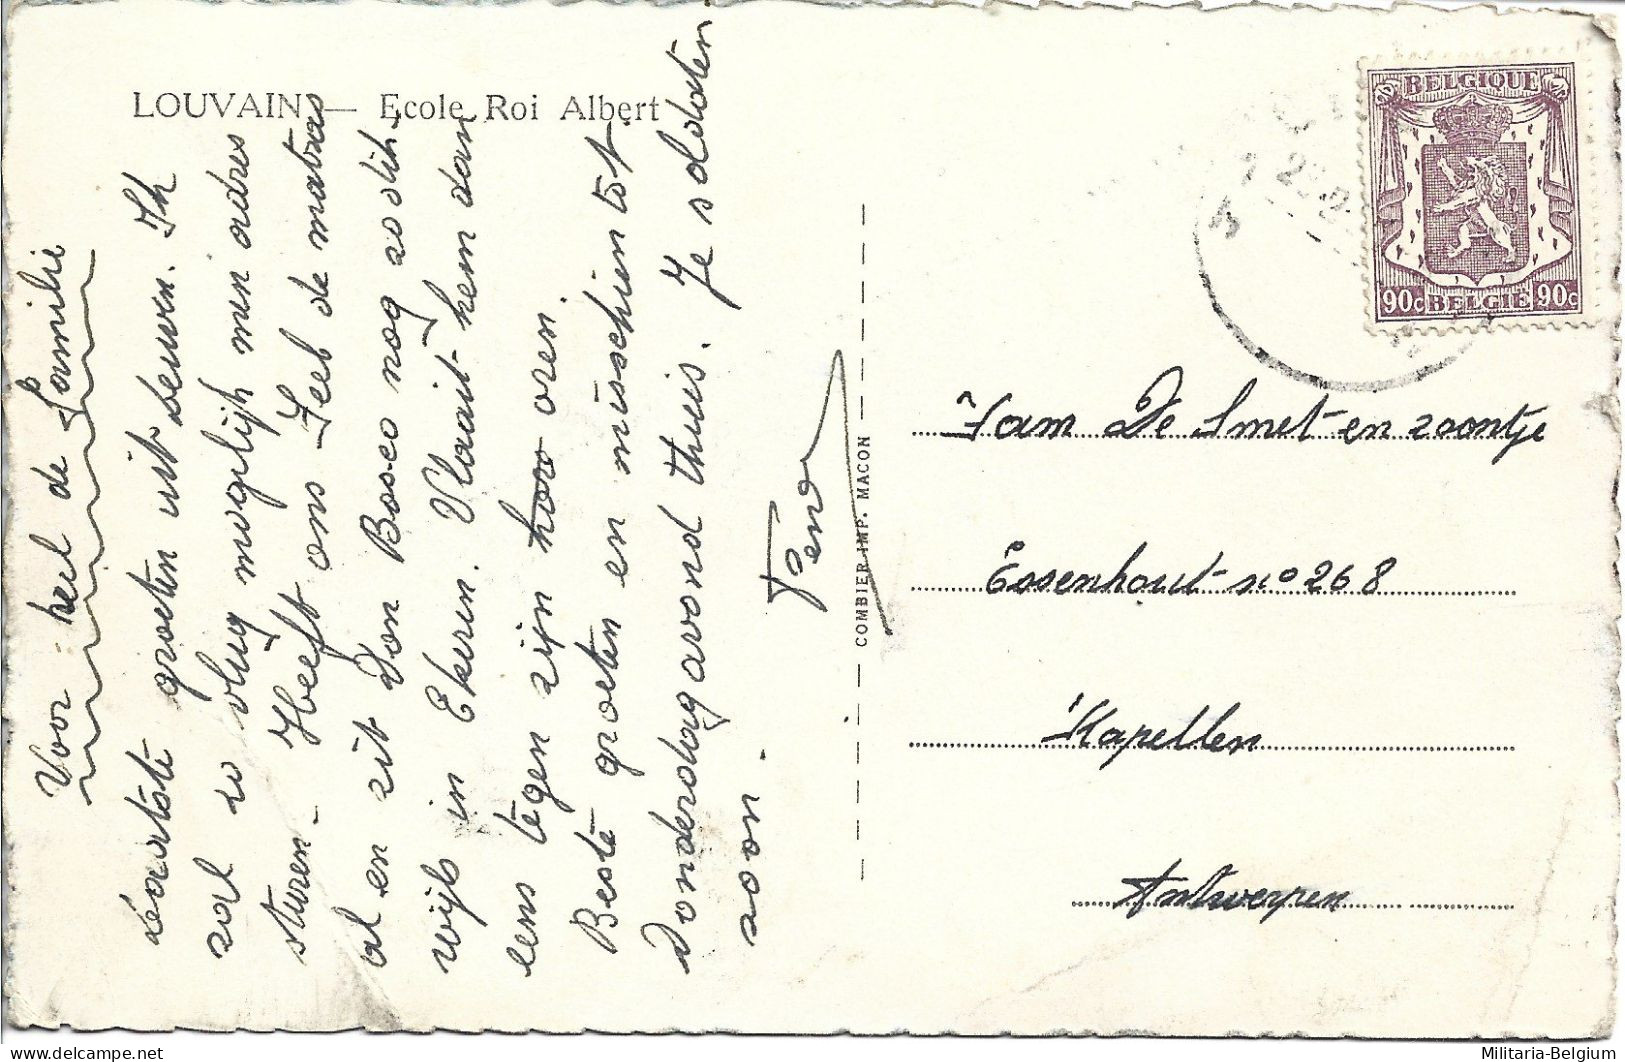 LOUVAIN — Ecole Roi Albert
Voor heel de Familie
zal zo vlug mogelijk mijn adres
sturen. Heeft ons Jeeb de matras
al en zit Don Bosco nog zo dik
wijls in Ekeren. Vlaait hem dan
eens tegen zijn oren.
Beste groeten en misschien tot
Donderdagavond thuis. Je soldaten
zoon.
COMBIER IMP. MACON
BELGIQUE
90c BELGIE 90c
Fam De Smet en zoontje
Essenhout no 268
Kapellen
Antwerpen
Militaria-Belgium